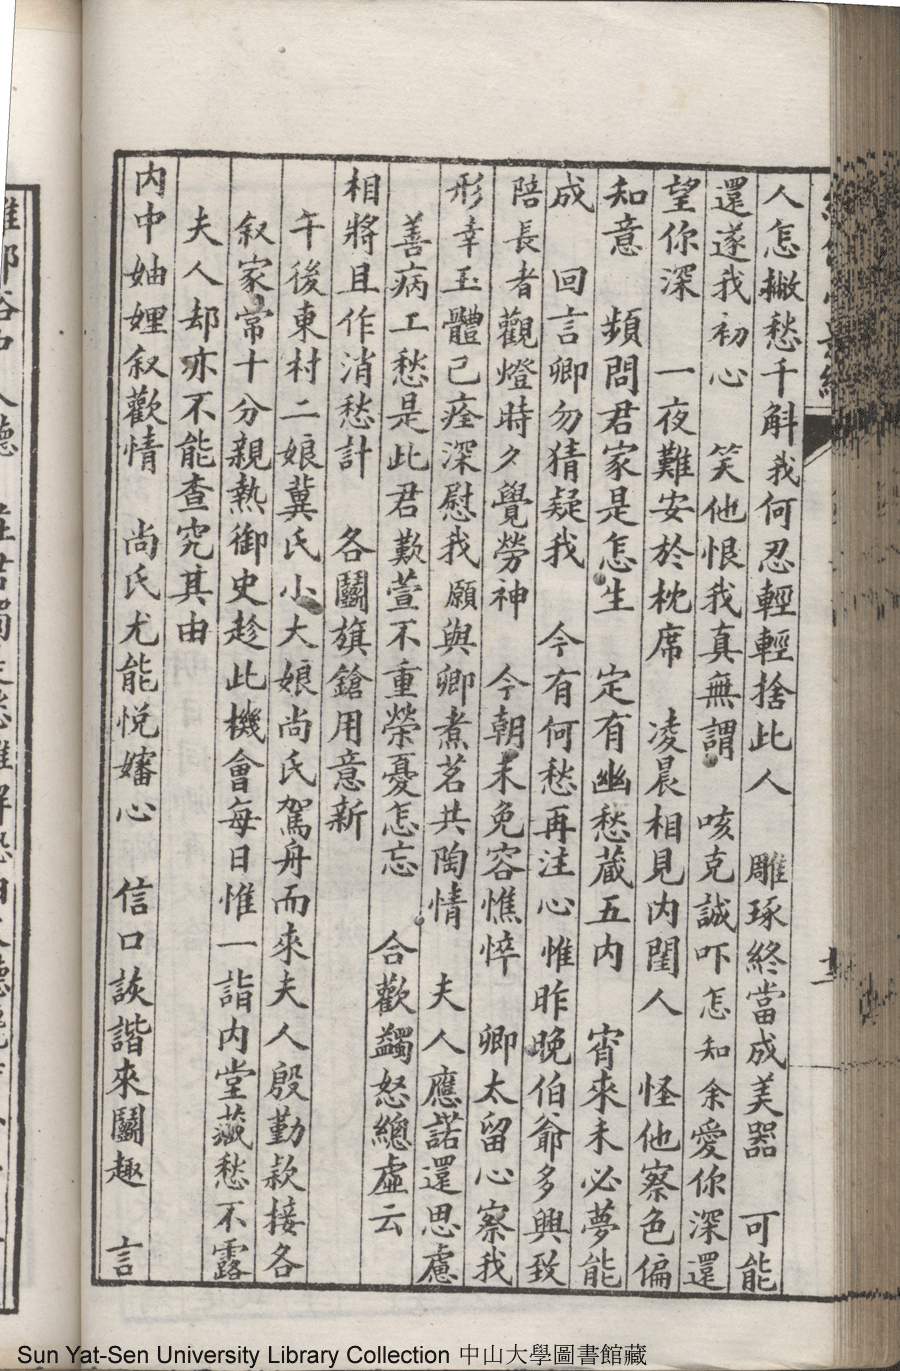 人怎撇愁千斛我何忍輕輕捨此人　雕琢終當成美器　可能
還遂我初心　笑他恨我真無謂　咳克誠吓怎知余愛你深還
望你深　一夜難安於枕席　凌晨相見内閨人　怪他察色偏
知意　頻問君家是怎生　定有幽愁蔵五内　宵來未必夢能
成　回言卿勿猜疑我　今有何愁再注心惟昨晚伯爺多興致
陪長者觀燈時夕覺勞神　今朝未免容憔悴　卿太留心察我
形幸玉體已痊深慰我願與卿煮茗共陶情　夫人應諾還思慮
善病工愁是此君歎萱不重榮憂怎忘　合歡蠲怒總虛云
相將且作消愁計　各鬭旗鎗用意新
午後東村二娘冀氏小大娘尚氏駕舟而來夫人殷勤款接各
叙家常十分親熱御史趁此機會每日惟一詣内堂藏愁不露
夫人却亦不能查究其由
内中妯娌叙歡情　尚氏尤能悅嬸心　信口詼諧來鬭趣　言
Sun Yat-Sen University Library Collection 中山大學圖書館藏